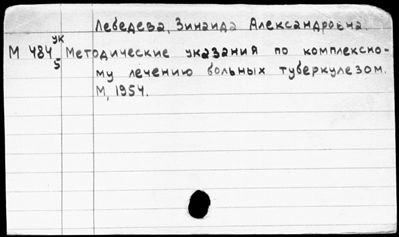 Лебедева, Зинаида Александровна.
ук
М 484 Методические указания по комплексно-
5
му лечению больных туберкулезом.
М, 1954.